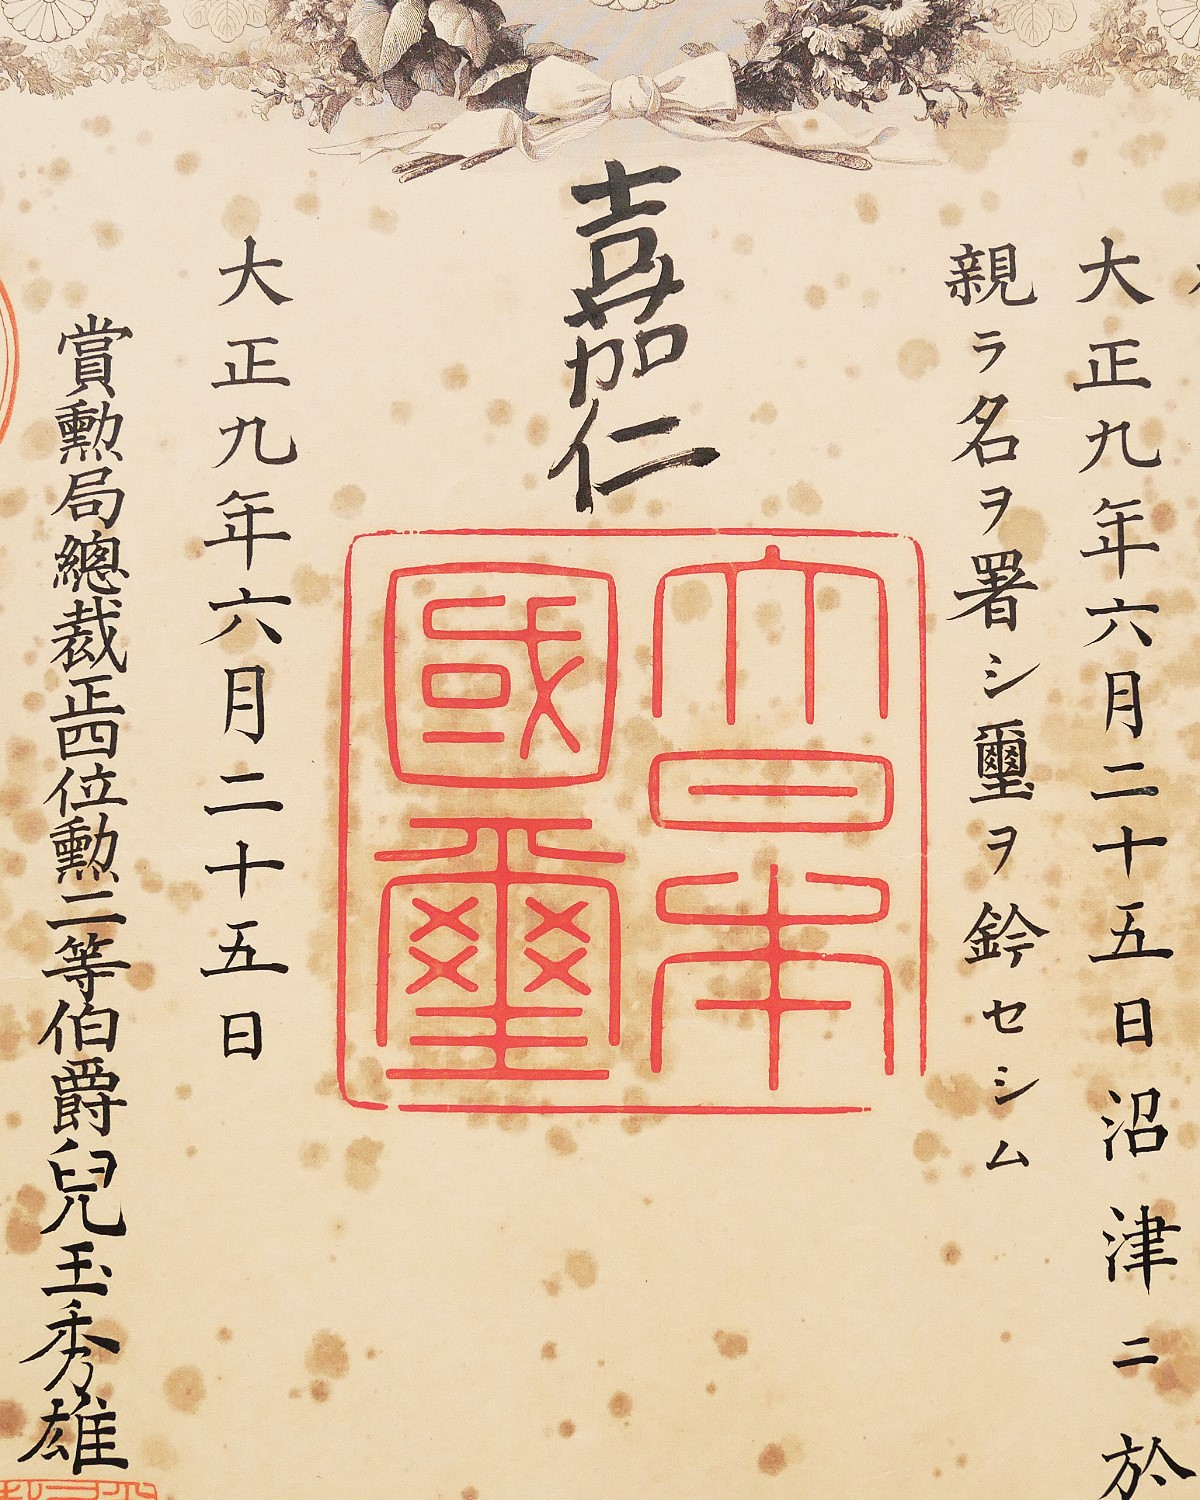 大正九年六月二十五日沼津ニ於
親ラ名ヲ署シ璽ヲ鈐セシム
嘉仁
大日本
國璽
大正九年六月二十五日
賞勲局總裁正四位勲二等伯爵兒玉秀雄